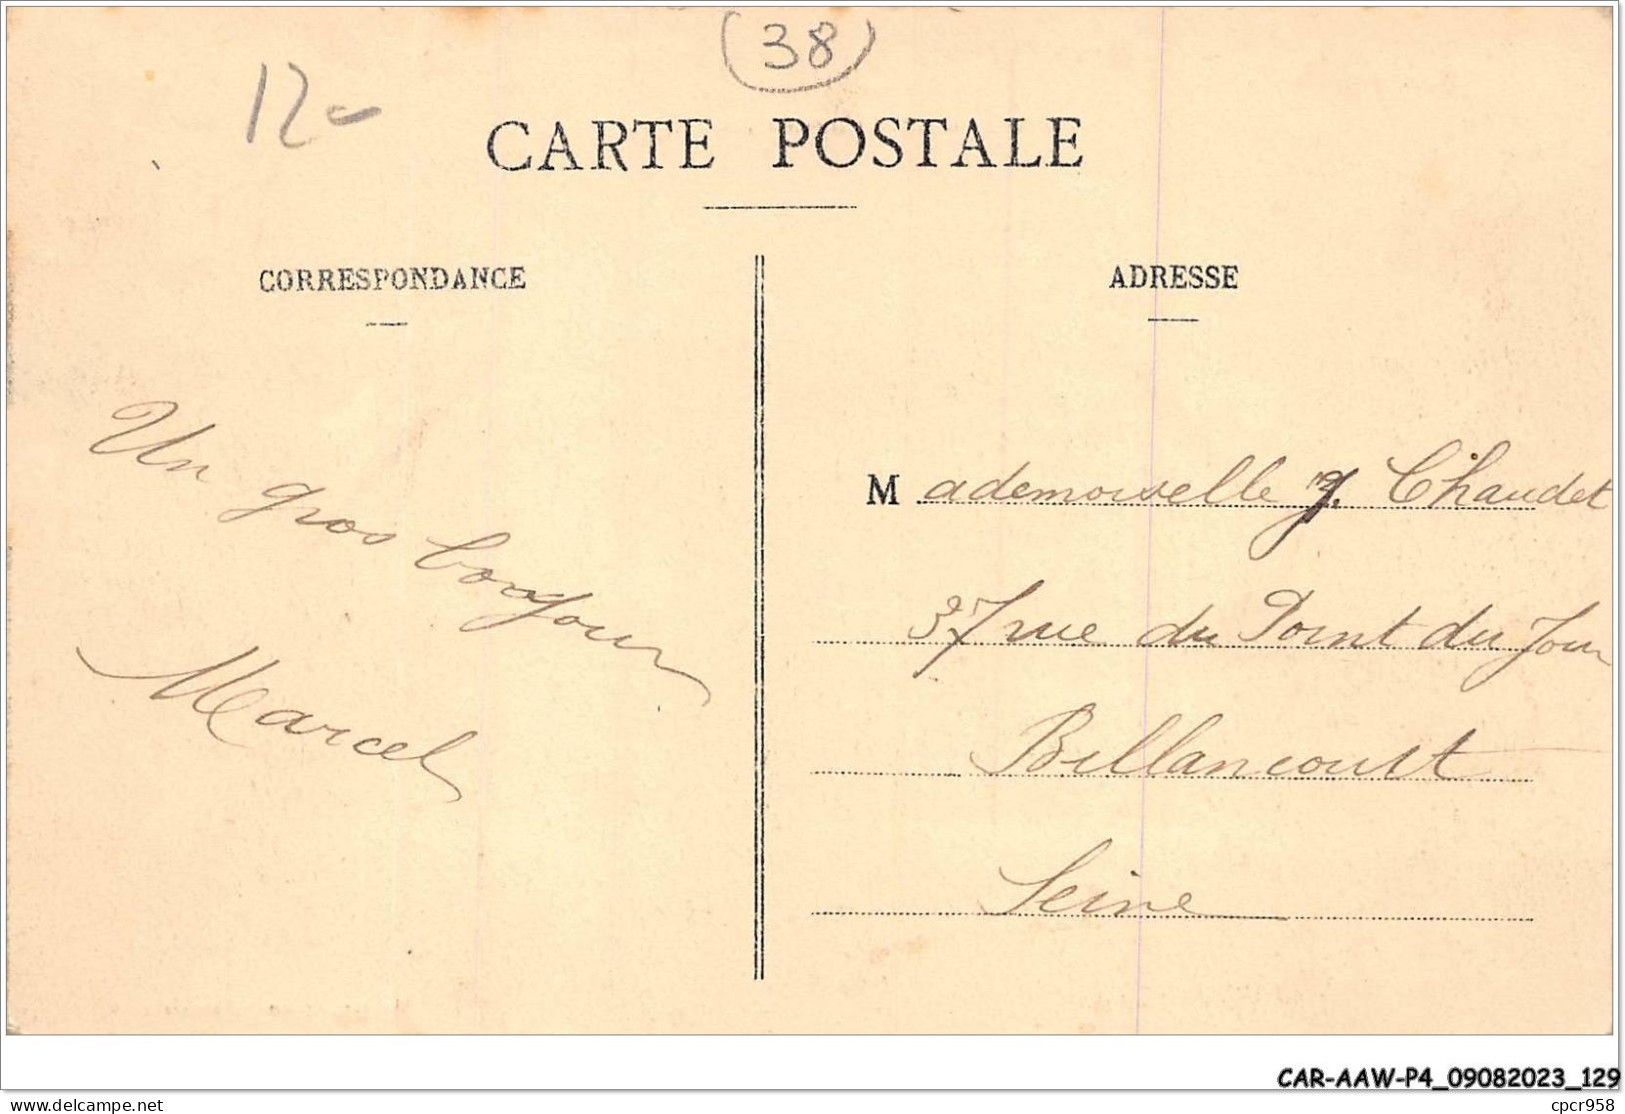 (38)
12-
CARTE POSTALE
CORRESPONDANCE
ADRESSE
Un gros bonjour
Marcel
Mademoiselle J. Chaudet
37 rue du Point du Jour
Billancourt
Seine
CAR-AAW-P4_09082023_129
delcampe.net
cpcr958